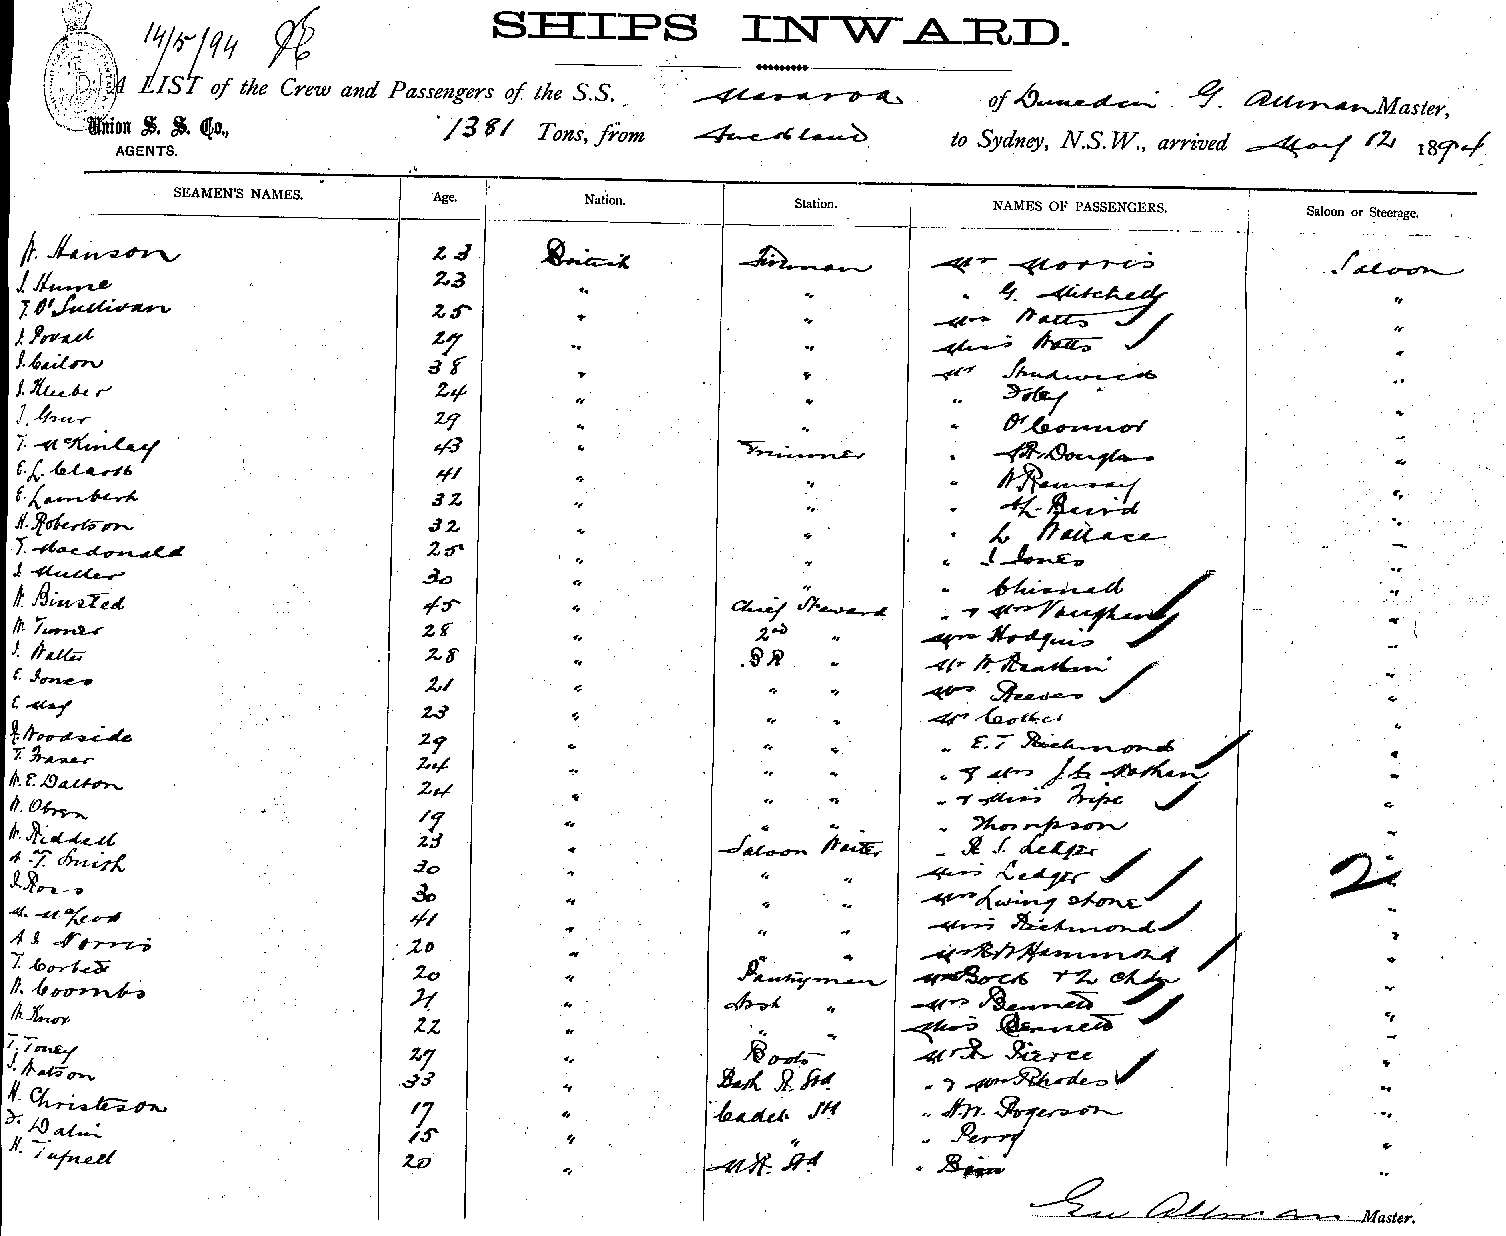 14/5/94
SHIPS INWARD.
A LIST of the Crew and Passengers of the S.S. Mararoa of Dunedin G. Allman Master,
Union S. S. Co., AGENTS. 1381 Tons, from Auckland to Sydney, N.S.W., arrived May 12 1894
SEAMEN'S NAMES. Age. Nation. Station. NAMES OF PASSENGERS. Saloon or Steerage.
W. Hanson 23 British Fireman Mr Morris Saloon
J. Hume 23 " " " G. Mitchell "
T. O'Sullivan 25 " " Mrs Watts "
J. 27 " " Miss Watts "
J. 38 " " Mr "
J. 24 " " " "
J. 29 " " " O'Connor "
T. McKinlay 43 " Trimmer " Douglas "
E. L. Clark 41 " " " W Ramsay "
E. Lambert 32 " " " Baird "
H. Robertson 32 " " " L Wallace "
T. Macdonald 25 " " " J Jones "
J. 30 " " " Chisnall "
W. Binsted 45 " Chief Steward " & Mrs Vaughan "
W. Turner 28 " 2nd " Mrs Hodgins "
J. Walter 28 " " Mr W. "
E. Jones 21 " " " Mrs Reeves "
E. May 23 " " " Mr "
Woodside 29 " " " " E. T Richmond "
T. Fraser 24 " " " " & Mrs Nathan "
W. E. Dalton 24 " " " " & Miss Fripe "
W. 19 " " " " Thompson "
W. Riddell 23 " Saloon Waiter " R. S. Ledger "
T. Smith 30 " " " Miss Ledger 2 "
J. Ross 30 " " " Mrs Livingstone "
M. McLeod 41 " " " Miss Richmond "
A J Norris 20 " " " Hammond "
T. Corbett 20 " Pantryman & 2 "
W. Coombs 21 " Asst " Mrs Bennett "
W. Knox 22 " " " Miss Bennett "
T. Toney 27 " Boots Mr Pierce "
J. Watson 33 " Bath R. Std. " & Mrs Rhodes "
H. Christeson 17 " Cadet " Rogerson "
15 " " " Perry "
H. Tufnell 20 " Std " "
Geo Allman Master.